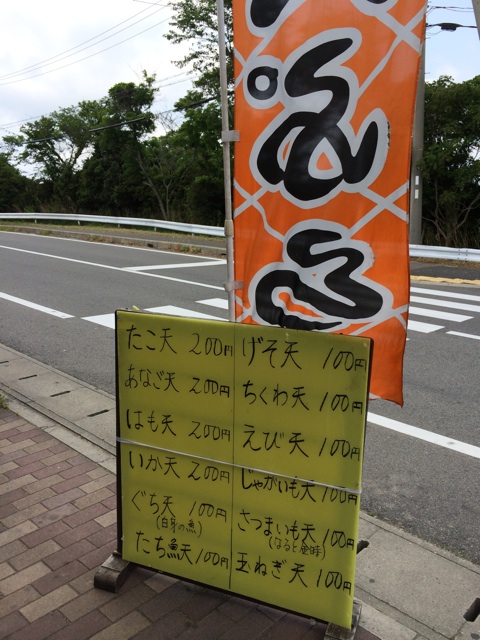 てんぷら
たこ天 200円
あなご天 200円
はも天 200円
いか天 200円
ぐち天 100円
(白身の魚)
たち魚天 100円
げそ天 100円
ちくわ天 100円
えび天 100円
じゃがいも天 100円
さつまいも天 100円
(なると金時)
玉ねぎ天 100円